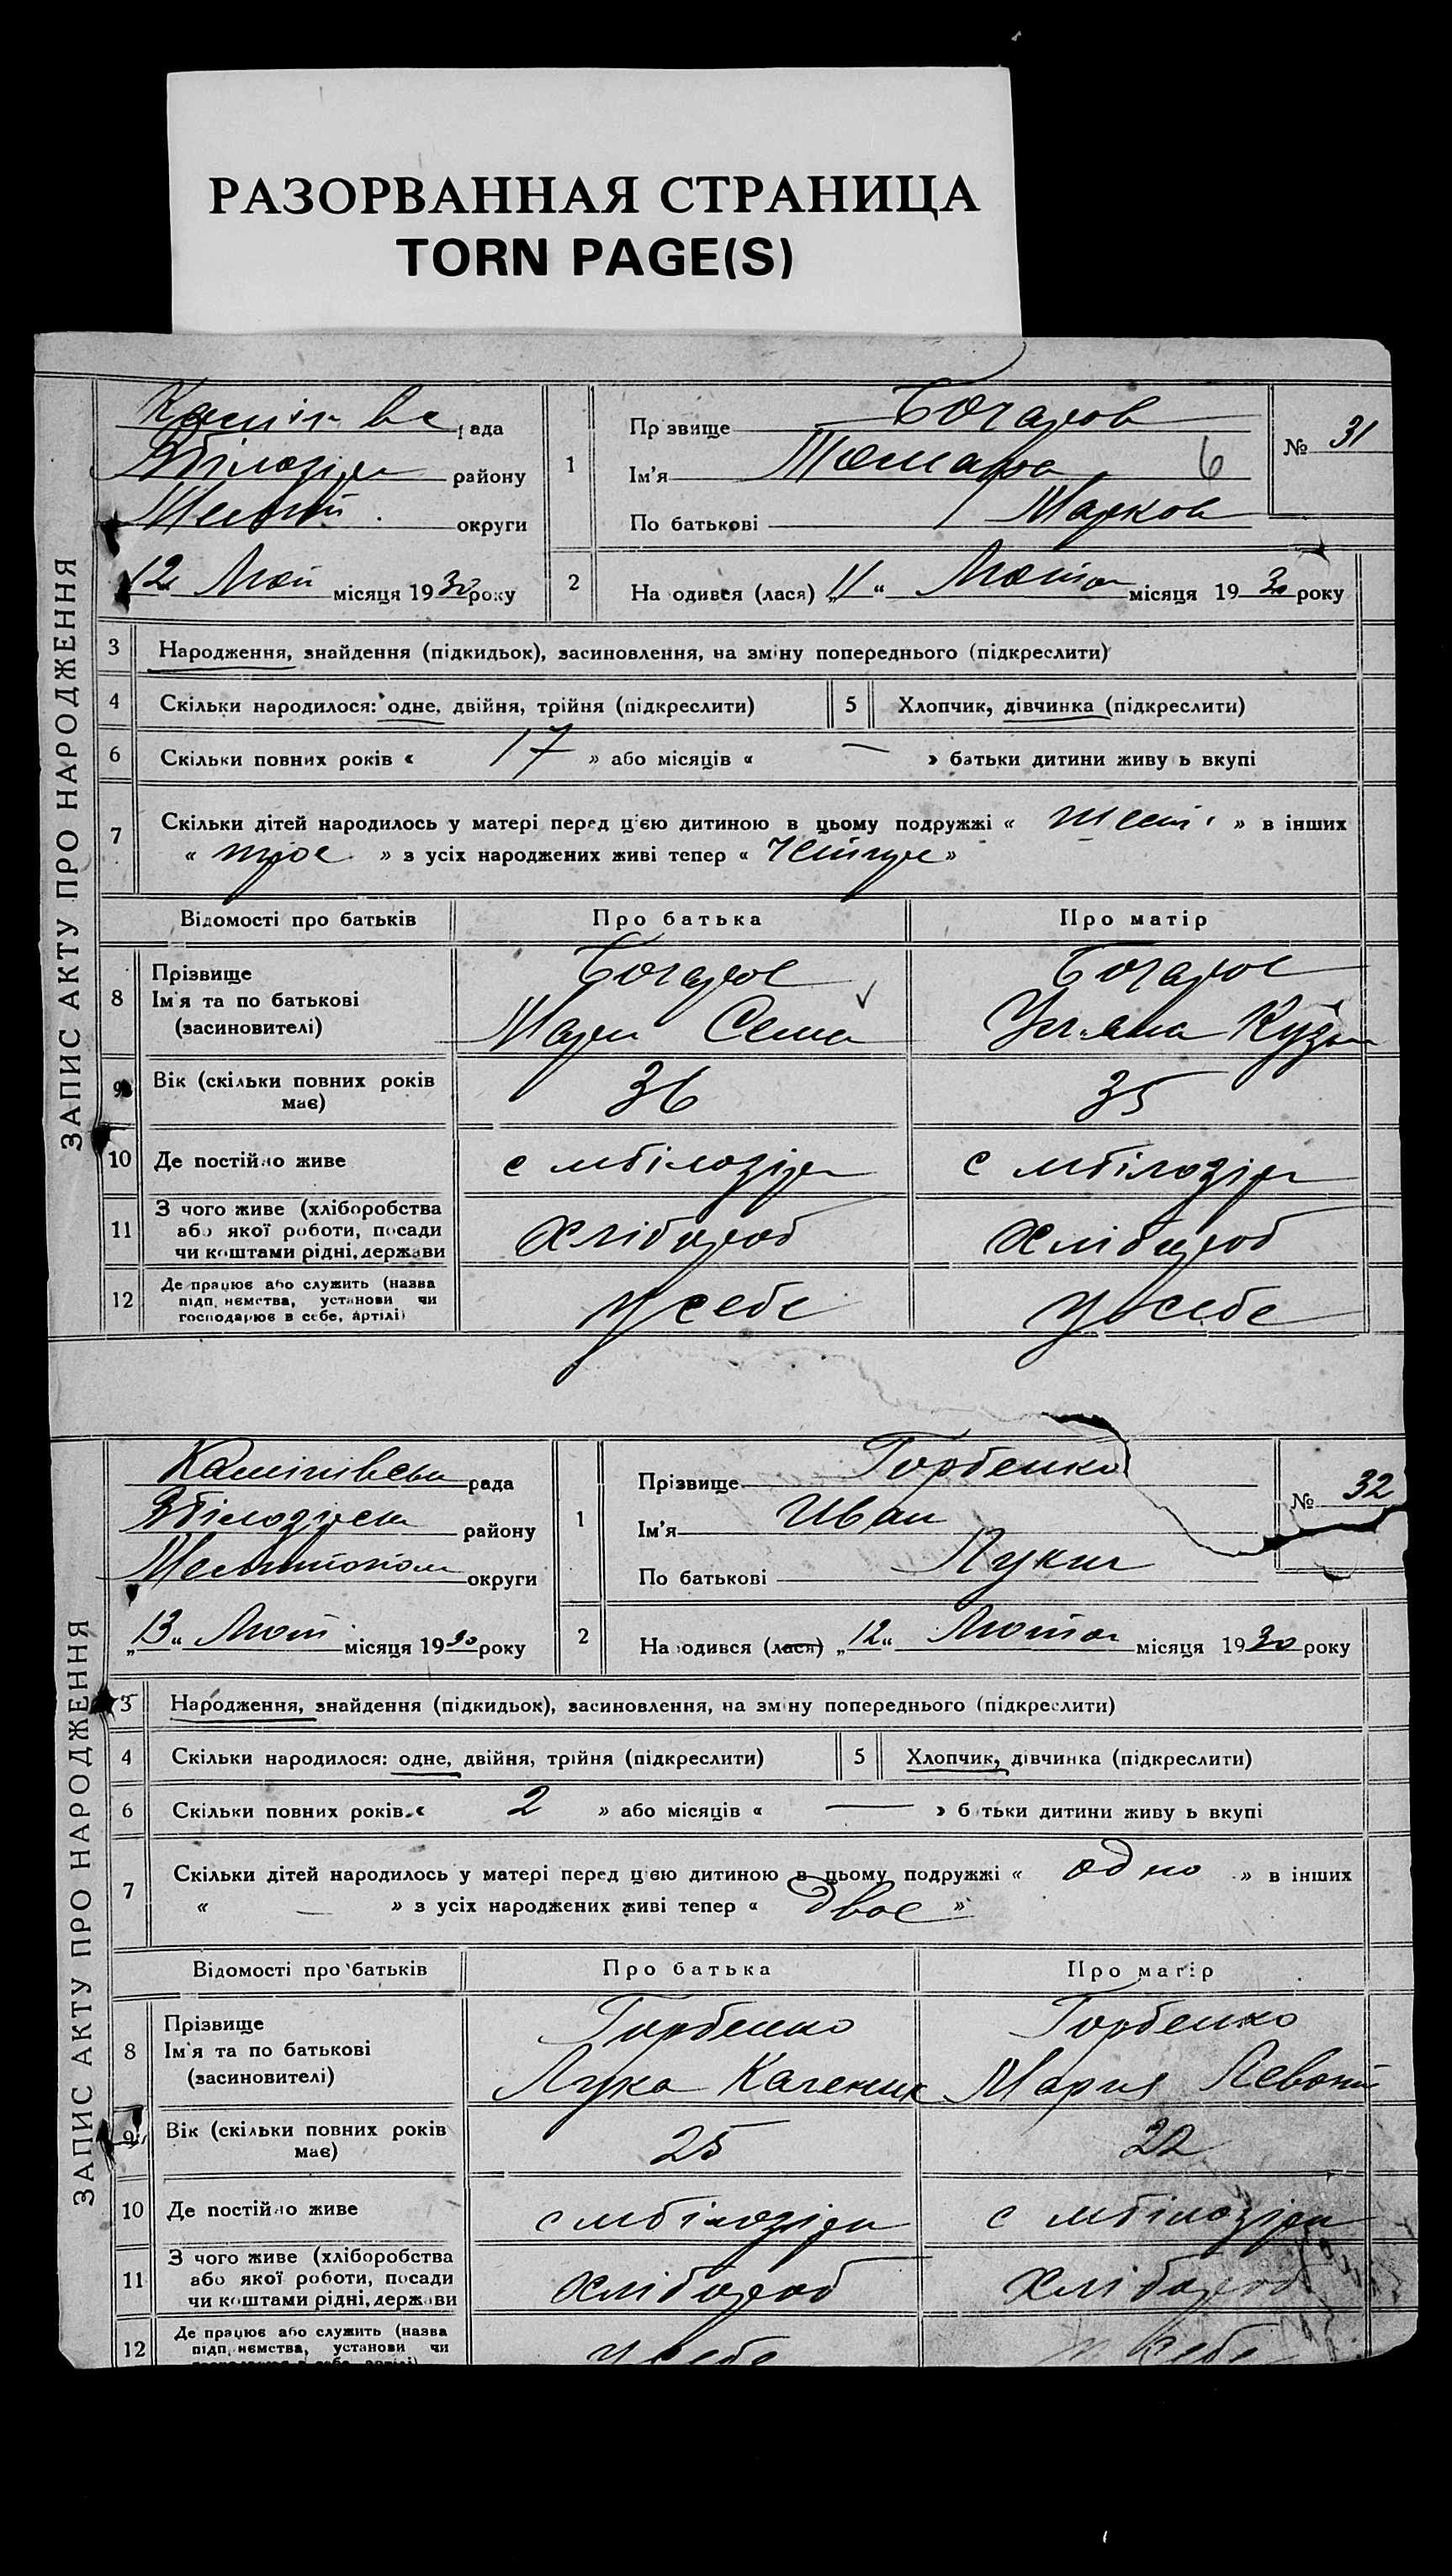 РАЗОРВАННАЯ СТРАНИЦА
TORN PAGE(S)
ЗАПИС АКТУ ПРО НАРОДЖЕННЯ
рада
району
округи
12 Лют місяця 1930 року
1
Прізвище Бочаров
Ім'я Тамара 6
По батькові Марков
№ 31
2
На одився (лася) „11“ Лютого місяця 1930 року
3 Народження, знайдення (підкидьок), засиновлення, на зміну попереднього (підкреслити)
4 Скільки народилося: одне, двійня, трійня (підкреслити)
5 Хлопчик, дівчинка (підкреслити)
6 Скільки повних років « 17 » або місяців « — » батьки дитини живу ь вкупі
7 Скільки дітей народилось у матері перед цією дитиною в цьому подружжі « » в інших
« троє » з усіх народжених живі тепер « »
Відомості про батьків Про батька Про матір
8 Прізвище
Ім'я та по батькові
(засиновителі)
Бочаров
Марк Сема
Бочаров
Уляна Кузьм
9 Вік (скільки повних років
має)
36 35
10 Де постійно живе с мбілозірк с мбілозірк
11 З чого живе (хліборобства
або якої роботи, посади
чи коштами рідні, держави
хлібороб хлібороб
12 Де працює або служить (назва
підп, немства, установи чи
господарює в себе, артілі)
у себе у себе
ЗАПИС АКТУ ПРО НАРОДЖЕННЯ
рада
району
Мелитопол округи
„13“ Лют місяця 1930 року
1
Прізвище Горбенко
Ім'я Иван
По батькові Лукич
№ 32
2
На одився (лася) „12“ Лютого місяця 1930 року
3 Народження, знайдення (підкидьок), засиновлення, на зміну попереднього (підкреслити)
4 Скільки народилося: одне, двійня, трійня (підкреслити)
5 Хлопчик, дівчинка (підкреслити)
6 Скільки повних років « 2 » або місяців « — » б тьки дитини живу ь вкупі
7 Скільки дітей народилось у матері перед цією дитиною в цьому подружжі « одно » в інших
« — » з усіх народжених живі тепер « двое »
Відомості про батьків Про батька Про матір
8 Прізвище
Ім'я та по батькові
(засиновителі)
Горбенко
Лука
Горбенко
Мария
9 Вік (скільки повних років
має)
25 22
10 Де постійно живе с мбілозірк с мбілозірк
11 З чого живе (хліборобства
або якої роботи, посади
чи коштами рідні, держ ви
хлібороб хлібороб
12 Де працює або служить (назва
підп, немства, установи чи
у себе у себе